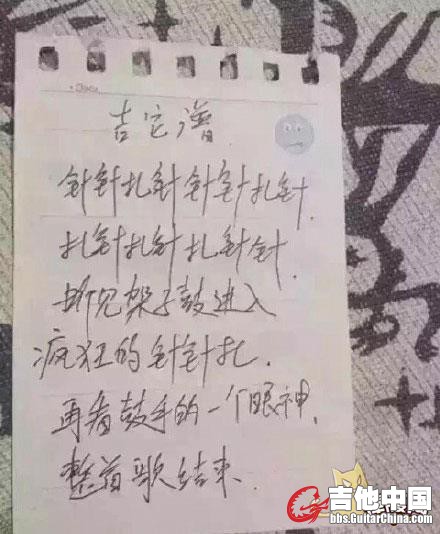 吉它谱
针针扎针针针扎针.
扎针扎针扎针针.
听见架子鼓进入
疯狂的针针扎.
再看鼓手的一个眼神.
整首歌结束.
吉他中国
bbs.GuitarChina.com